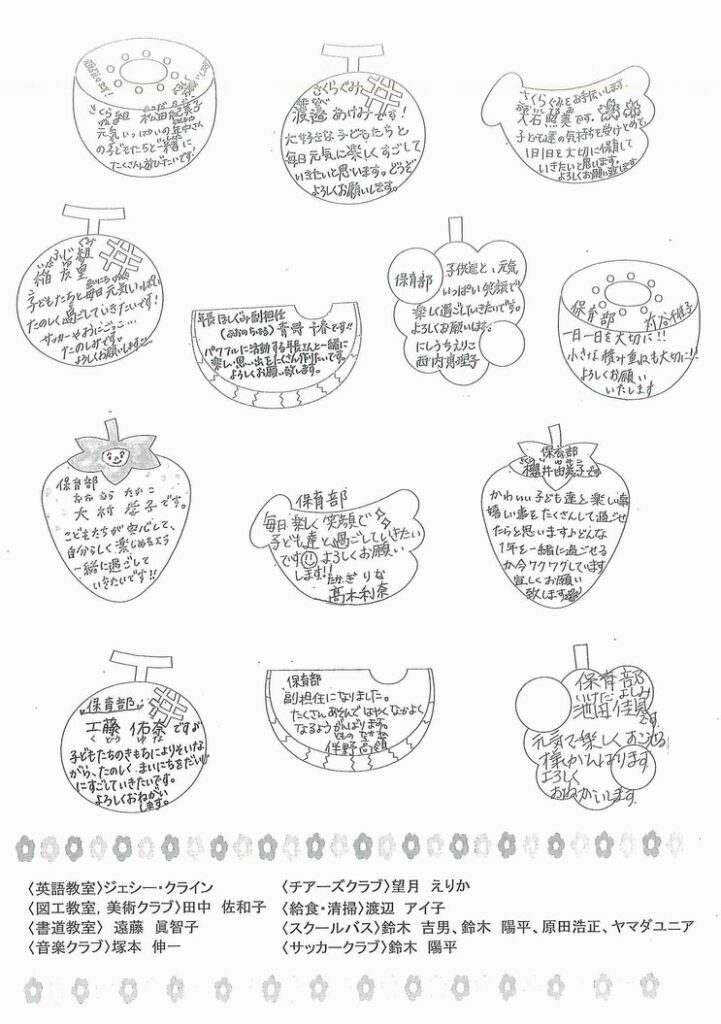 さくら組 松田
元気いっぱいの年中さん
の子どもたちと一緒に
たくさん遊びたいです!
さくらぐみ
渡邉 あけみです!
大好きな子どもたちと
毎日元気に楽しくすごして
いきたいと思います。どうぞ
よろしくお願いします。
さくらぐみをお手伝いします
大石 照美です。
子ども達の気持を受けとめて
1日1日を大切に保育して
いきたいと思います。
よろしくお願い致します
ふじ組
稲 友里
子どもたちと毎日元気いっぱい
たのしく過ごしていきたいです!
サッカーやおにごっこ…
たのしみです。
よろしくお願いします
年長 ほしぐみ 副担任
(あおの ちはる) 青野 千春です!!
パワフルに活動する年長さんと一緒に
楽しい思い出をたくさん作りたいです。
よろしくお願い致します。
保育部
子供達と、元気
いっぱい笑顔で
楽しく過ごしていきたいです。
よろしくお願います。
にしうちえりこ
西内 理子
保育部
一日一日を大切に!!
小さな積み重ねも大切に!!
よろしくお願い
いたします
保育部
おおむら たかこ
大村 です。
こどもたちが安心して、
自分らしく楽しめるよう
一緒に過ごして
いきたいです!!
保育部
毎日楽しく笑顔で
子ども達と過ごしていきたい
です よろしくお願い
します!!
たかぎりな
髙木利奈
保育部
櫻井由美子です
かわいい子ども達と楽しい事
嬉しい事をたくさんして過ごせ
たらと思います♪どんな
1年を一緒に過ごせる
か今ワクワクしています
宜しくお願い
致します
保育部
工藤 佑奈です♪
くどう ゆな
子どもたちのきもちによりそいな
がら、たのしく まいにちをだいじ
にすごしていきたいです。
よろしくおねがい
します。
保育部
副担任になりました。
たくさんあそんではやくなかよく
なるようがんばります。
伴野
保育部
いけだ よしみ
池田佳 
です。
元気で楽しくおこせる
様がんばります
よろしく
おねがいします。
〈英語教室〉ジェシー・クライン 〈チアーズクラブ〉望月 えりか
〈図工教室, 美術クラブ〉田中 佐和子 〈給食・清掃〉渡辺 アイ子
〈書道教室〉 遠藤 眞智子 〈スクールバス〉鈴木 吉男、鈴木 陽平、原田浩正、ヤマダユニア
〈音楽クラブ〉塚本 伸一 〈サッカークラブ〉鈴木 陽平